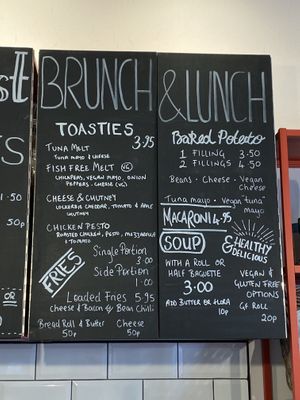 st
S
1.50
50p
OR
BRUNCH
TOASTIES
3.95
TUNA MELT
TUNA MAYO & CHEESE
FISH FREE MELT (VG)
CHICKPEAS, VEGAN MAYO, ONION
PEPPERS, CHEESE (VG)
CHEESE & CHUTNEY
CHEDDAR, TOMATO &
CHUTNEY
CHICKEN PESTO
ROASTED CHICKEN, PESTO, MOZZARELLA
& TOMATO
FRIES
Single Portion
3.00
Side Portion
1.00
Loaded Fries 5.95
Cheese & Bacon or Bean Chilli
Bread Roll & Butter
50p
Cheese
50p
& LUNCH
Baked Potato
1 FILLING 3.50
2 FILLINGS 4.50
Beans - Cheese - Vegan
Cheese
Tuna mayo - Vegan "tuna"
mayo
MACARONI 4.95
SOUP
HEALTHY
& DELICIOUS
WITH A ROLL OR
HALF BAGUETTE
3.00
ADD BUTTER OR FLORA
10p
VEGAN &
GLUTEN FREE
OPTIONS
GF ROLL
20p